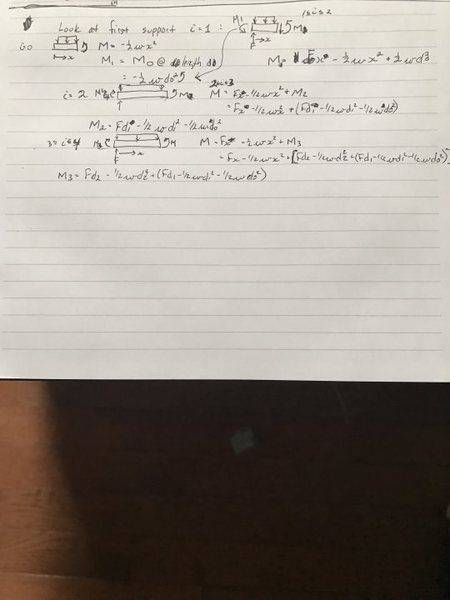 Look at first support i=1: M1 1≤i≤2
i<0 M = -½wx²
M1 = M0 @ length d0 M = Fx - ½wx² + ½wd0²
= -½wd0²
i=2 M2 M 2≤i≤3 M = Fx - ½wx² + M2
= Fx - ½wx² + (Fd1 - ½wd1² - ½wd0²)
M2 = Fd1 - ½wd1² - ½wd0²
3≤i≤4 M3 M M = Fx - ½wx² + M3
= Fx - ½wx² + [Fd2 - ½wd2² + (Fd1 - ½wd1² - ½wd0²)]
M3 = Fd2 - ½wd2² + (Fd1 - ½wd1² - ½wd0²)